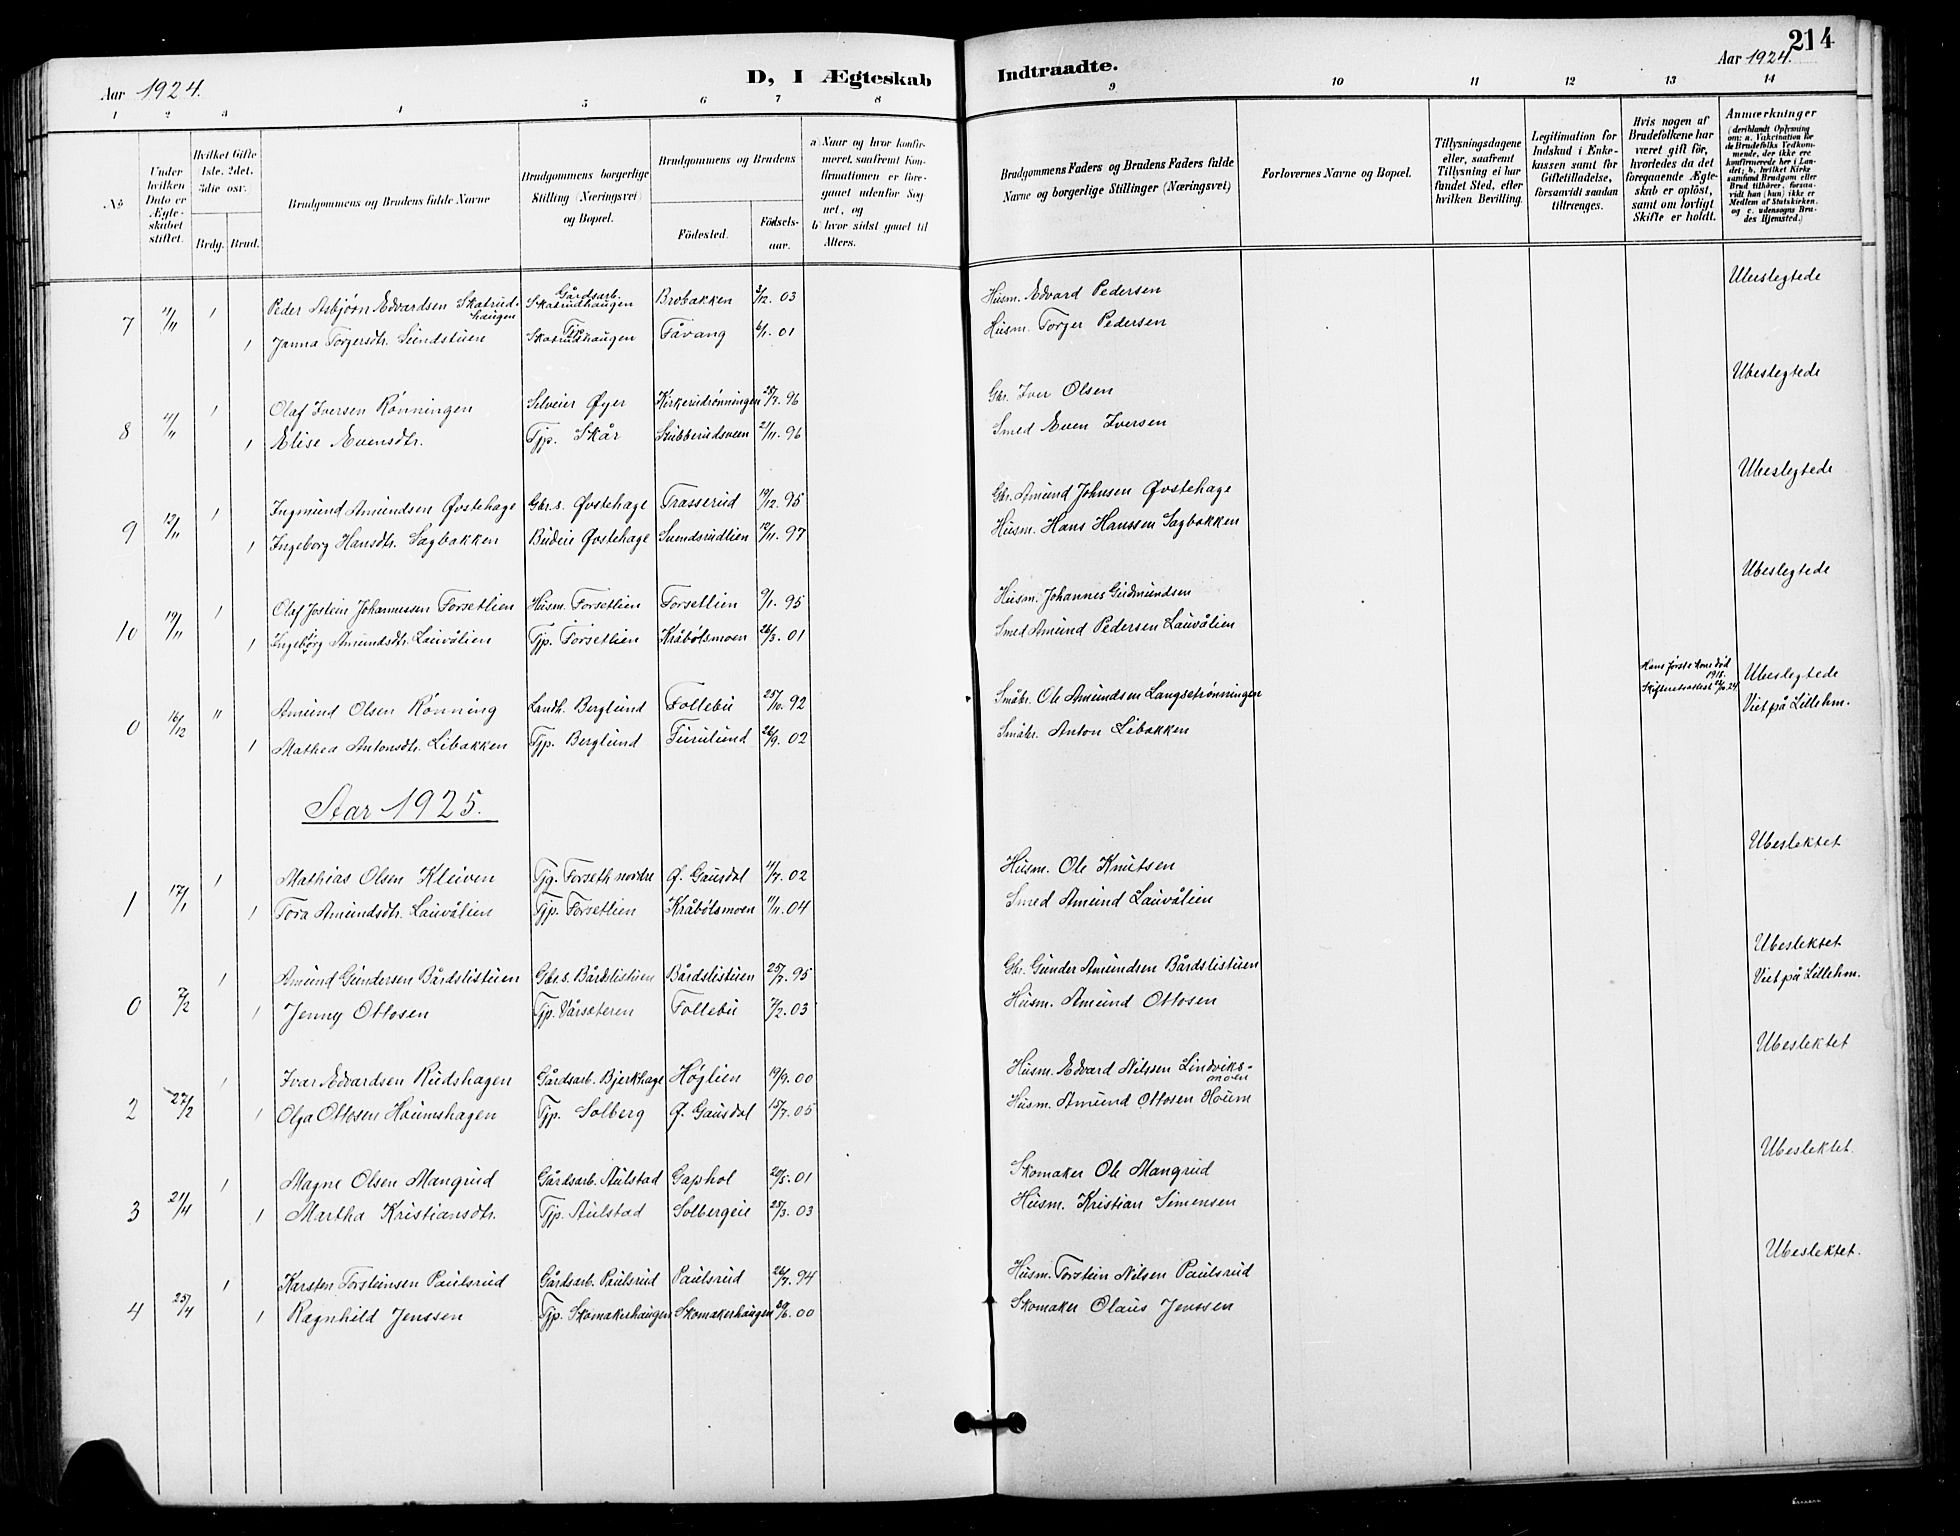 214
Aar 1924.
D, I Ægteskab
Indtraadte.
Aar 1924.
1 2 3 4 5 6 7 8 9 10 11 12 13 14
No
Under hvilken Dato er Ægteskabet stiftet.
Hvilket Gifte 1ste. 2det. 3die osv.
Brdg. Brud.
Brudgommens og Brudens fulde Navne
Brudgommens borgerlige Stilling (Næringsvei) og Bopæl.
Brudgommens og Brudens
Födested.
Födselsaar.
a) Naar og hvor konfirmeret, saafremt Konfirmationen er foregaaet udenfor Sognet, og
b) hvor sidst gaaet til Alters.
Brudgommens Faders og Brudens Faders fulde Navne og borgerlige Stillinger (Næringsvei)
Forlovernes Navne og Bopæl.
Tillysningsdagene eller, saafremt Tillysning ei har fundet Sted, efter hvilken Bevilling.
Legitimation for Indskud i Enkekassen samt for Giftetilladelse, forsaavidt saadan tiltrænges.
Hvis nogen af Brudefolkene har været gift før, hvorledes da det foregaaende Ægteskab er opløst, samt om lovligt Skifte er holdt.
Anmærkninger
(deriblandt Oplysning om: a. Vakcination for de Brudefolks Vedkommende, der ikke ere konfirmerede her i Landet; b. hvilket Kirkesamfund Brudgom eller Brud tilhører, forsaavidt han (hun) ikke er Medlem af Statskirken, og c. udensogns Brudes Hjemsted.)
Peder Asbjørn Edvardsen Skatrudhaugen Gårdsarb. Skatrudhaugen Brobakken 3/12. 03 Husm. Edvard Pedersen Ubeslegtede
7 4/11 1
1 Janna Torgersdtr. Sundstuen Tjp. Skatrudhaugen Fåvang 6/1. 01 Husm. Torger Pedersen
Olaf Iversen Rønningen Selveier Øyer Kirkerudrønningen 28/7. 96 Gbr. Iver Olsen Ubeslegtede
8 4/11 1
1 Elise Evensdtr. Tjp. Skår Stubberudsveen 21/11. 96 Smed Even Iversen
Ingmund Amundsen Øvstehage Gbr.s. Øvstehage Trasserud 19/12. 95 Gbr. Amund Johnsen Øvstehage Ubeslegtede
9 12/11 1
1 Ingeborg Hansdtr. Sagbakken Budeie Øvstehage Svendsrudlien 12/11. 97 Husm. Hans Hanssen Sagbakken
Olaf Jostein Johannessen Forsetlien Husm. Forsetlien Forsetlien 9/1. 95 Husm. Johannes Gudmundsen Ubeslegtede
10 19/11 1
1 Ingebjørg Amundsdtr. Lauvålien Tjp. Forsetlien Kråbølsmoen 26/3. 01 Smed Amund Pedersen Lauvålien
Amund Olsen Rønning Landh. Berglund Follebu 25/10. 92 Småbr. Ole Amundsen Langsetrønningen Hans første kone død 1918. Ubeslegtede
0 16/12 " Viet på Lillehm.
1 Mathea Antonsdtr. Libakken Tjp. Berglund Furulund 26/9. 02 Småbr. Anton Libakken
Aar 1925.
Mathias Olsen Kleiven Tjg. Forseth nordre Ø. Gausdal 4/7. 02 Husm. Ole Knutsen Ubeslektet
1 17/1 1
1 Tora Amundsdtr. Lauvålien Tjp. Forsetlien Kråbølsmoen 11/11. 04 Smed Amund Lauvålien
Amund Gundersen Bårdslistuen Gbr.s. Bårdslistuen Bårdslistuen 25/7. 95 Gbr. Gunder Amundsen Bårdslistuen Ubeslektet
0 7/2 1 Viet på Lillehm.
1 Jenny Ottosen Tjp. Vårsæteren Follebu 7/2. 03 Husm. Amund Ottosen
Ivar Edvardsen Rudshagen Gårdsarb. Bjerkhage Høglien 19/9. 00 Husm. Edvard Nilssen Lindviksmoen Ubeslektet
2 27/2 1
1 Olga Ottosen Houmshagen Tjp. Solberg Ø. Gausdal 15/7. 05 Husm. Amund Ottosen Houm
Magne Olsen Mangrud Gårdsarb. Aulstad Gaphol 20/5. 01 Skomaker Ole Mangrud Ubeslektet.
3 21/4 1
1 Martha Kristiansdtr. Tjp. Aulstad Solbergeie 25/3. 03 Husm. Kristian Simensen
Karsten Torsteinsen Paulsrud Gårdsarb. Paulsrud Paulsrud 26/7. 94 Husm. Torstein Nilsen Paulsrud Ubeslektet.
4 25/4 1
1 Ragnhild Jenssen Tjp. Skomakerhaugen Skomakerhaugen 00 Skomaker Olaus Jenssen